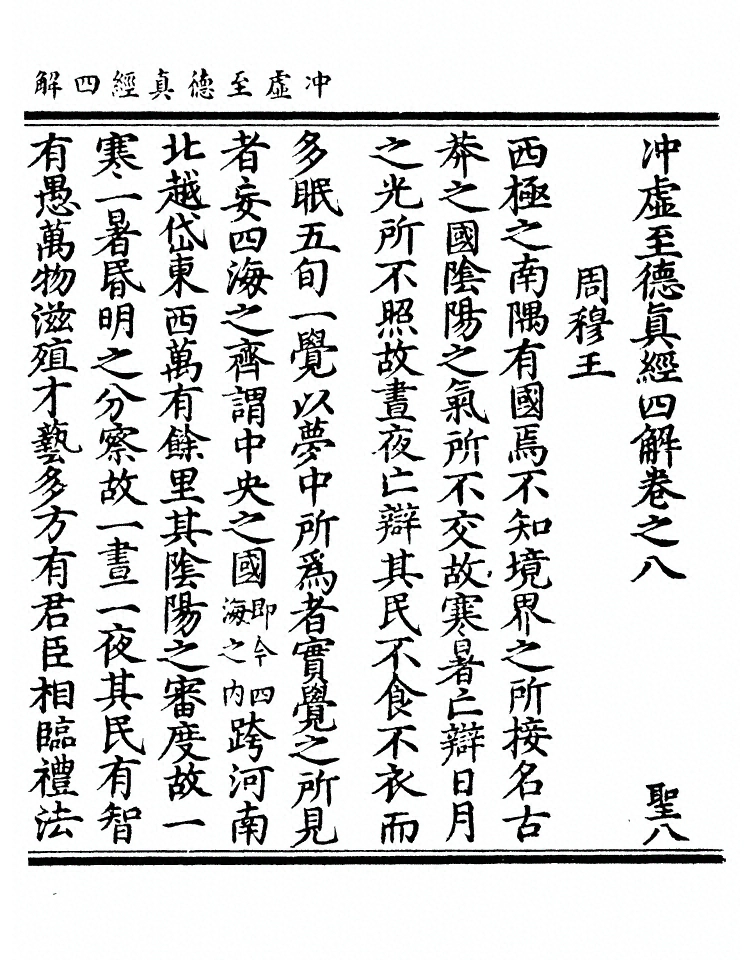 冲虛至德眞經四解
冲虛至德眞經四解卷之八 聖八
周穆王
西極之南隅有國焉不知境界之所接名古
莽之國陰陽之氣所不交故寒暑亡辯日月
之光所不照故晝夜亡辯其民不食不衣而
多眠五旬一覺以夢中所爲者實覺之所見
者妄四海之齊謂中央之國即今四海之内跨河南
北越岱東西萬有餘里其陰陽之審度故一
寒一暑昬明之分察故一晝一夜其民有智
有愚萬物滋殖才藝多方有君臣相臨禮法